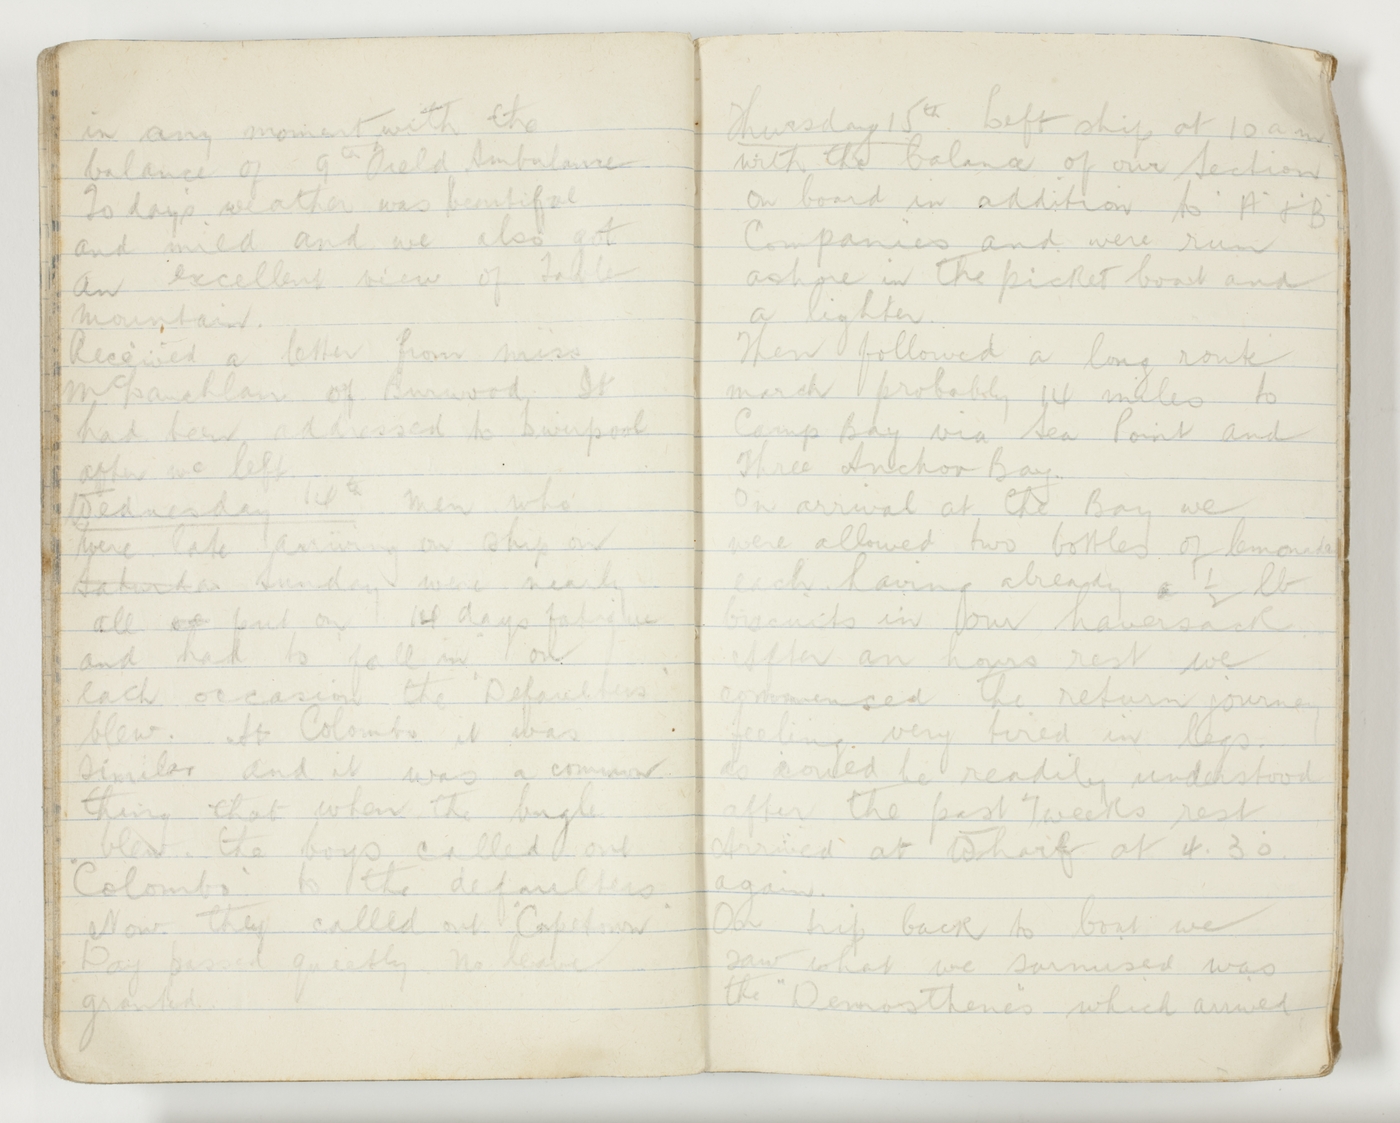 in any moment with the
balance of 9th Field Ambulance
To days weather was beautiful
and mild and we also got
an excellent view of Table
Mountain.
Received a letter from Miss
of Burwood. It
had been addressed to Liverpool
after we left.
Wednesday 14th Men who
were late arriving on ship on
Sunday were nearly
all put on 14 days fatigue
and had to "fall in" on
each occasion the "Defaulters"
blew. At Colombo it was
similar and it was a common
thing that when the bugle
blew the boys called out
"Colombo" to the defaulters
Now they called out "Capetown"
Day passed quietly No leave
granted.
Thursday 15th Left ship at 10 am
with the balance of our Section
on board in addition to "A" & "B"
Companies and were run
ashore in the picket boat and
a lighter.
Then followed a long route
march probably 14 miles to
Camp Bay via Sea Point and
Three Anchor Bay.
On arrival at the Bay we
were allowed two bottles of lemonade
each having already a ½ lb
biscuits in our haversack
After an hours rest we
commenced the return journey
feeling very tired in legs.
as could be readily understood
after the past 7 weeks rest
Arrived at Wharf at 4.30
again.
On trip back to boat we
saw what we surmised was
the "Demosthenes" which arrived